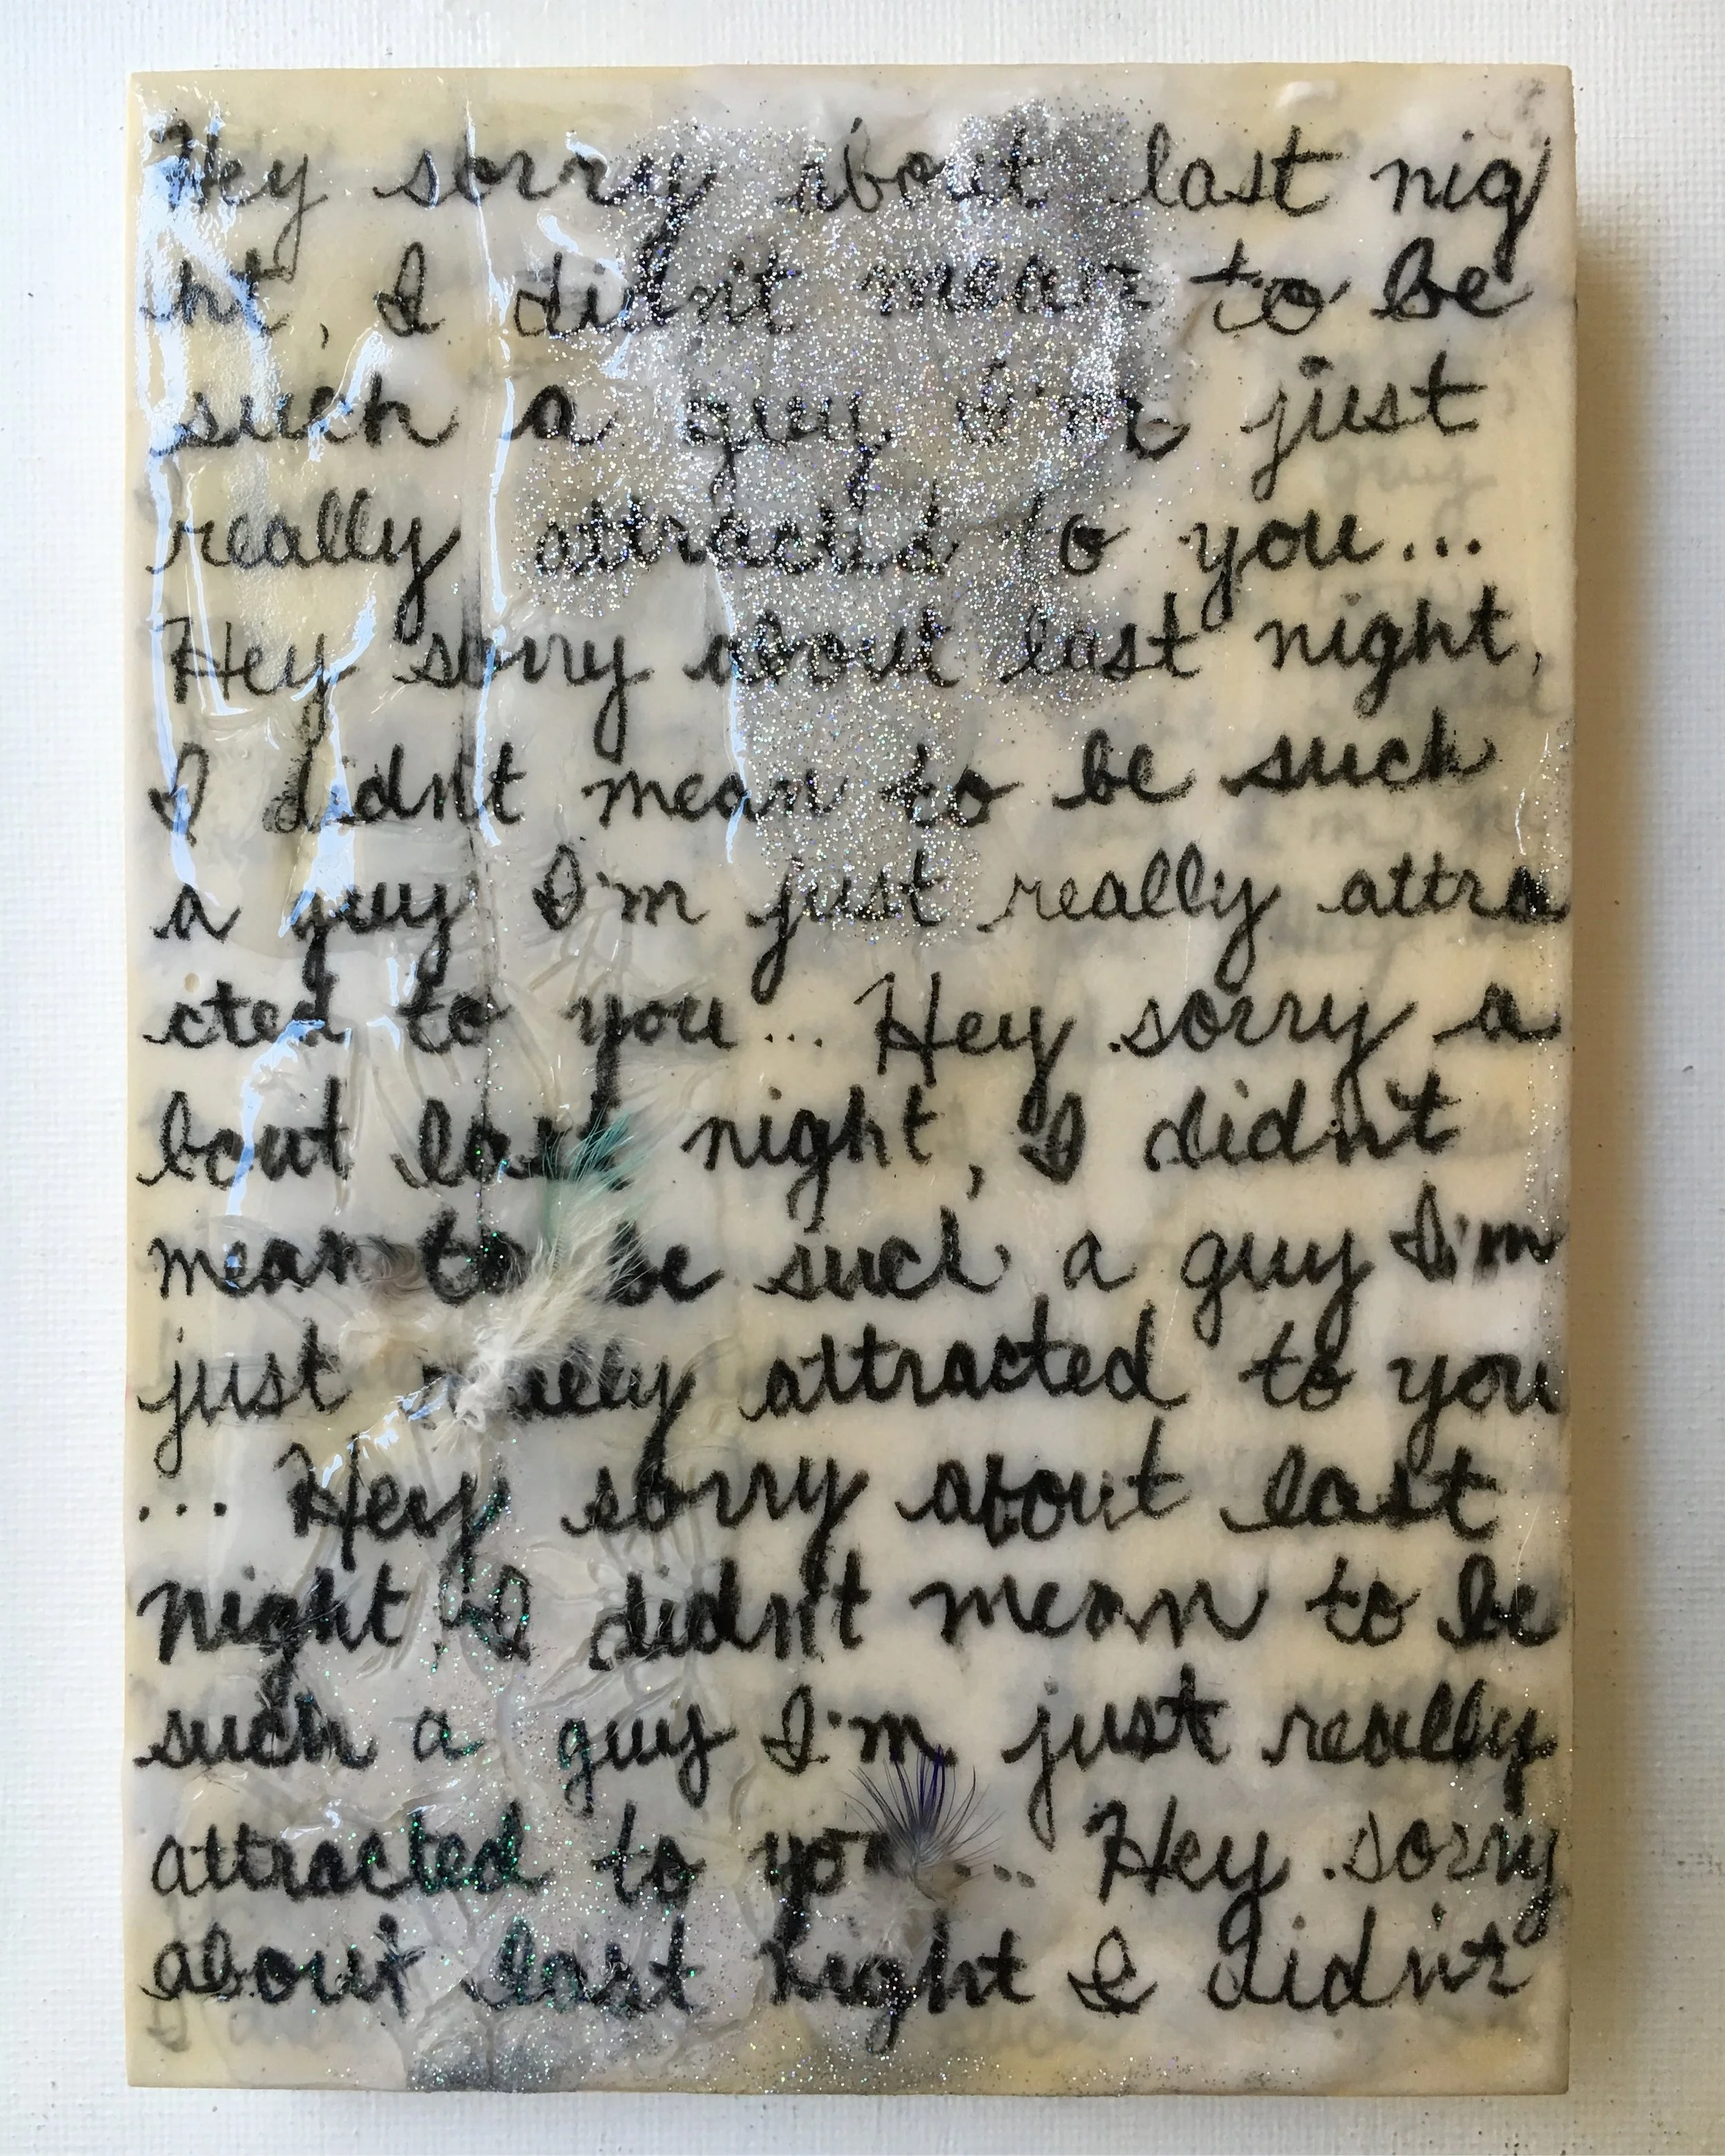 Hey sorry about last nig
ht, I didn't mean to be
such a guy I'm just
really attracted to you...
Hey sorry about last night,
I didn't mean to be such
a guy I'm just really attra
cted to you... Hey sorry a
bout last night, I didn't
mean to be such a guy I'm
just really attracted to you
... Hey sorry about last
night, I didn't mean to be
such a guy I'm just really
attracted to you... Hey sorry
about last night I didn't